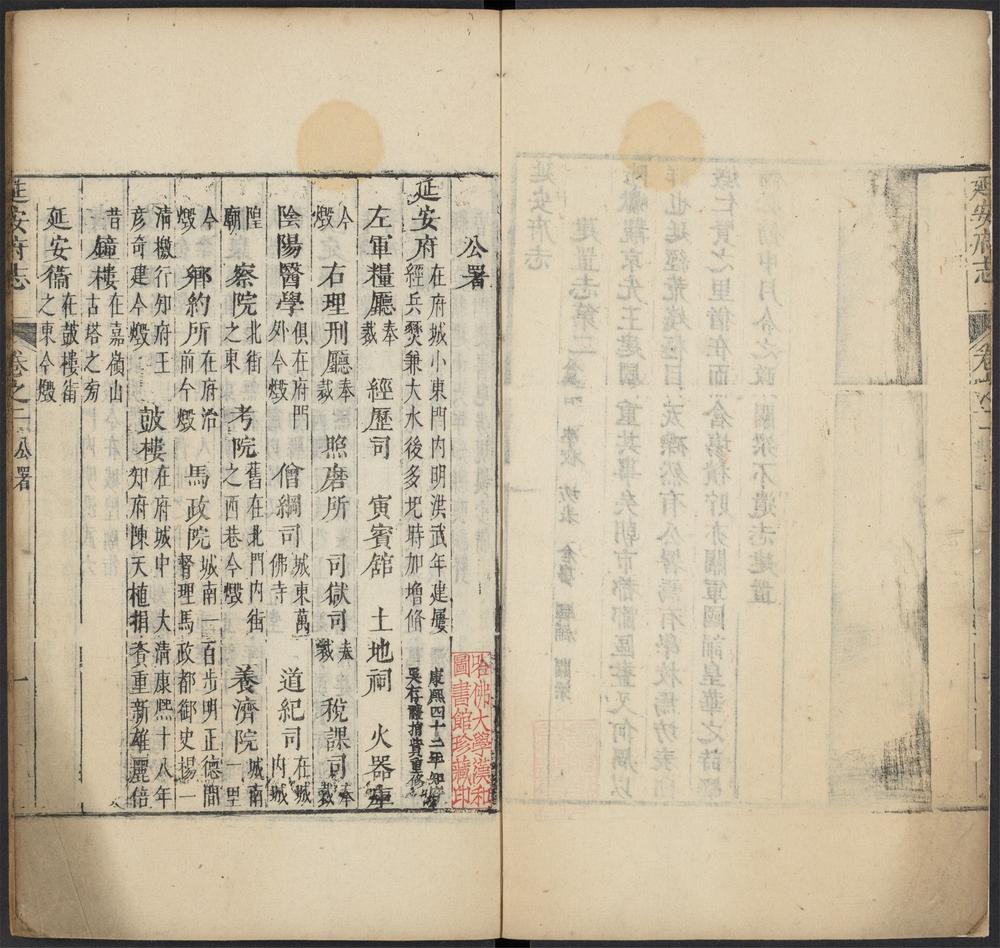 延安府志
公署
延安府在府城小東門內明洪武年建屢經兵燹兼大水後多圯時加增脩康熙四十二年知府吳存禮捐貲重脩
左軍糧廳奉裁 經歷司 寅賓舘 土地祠 火器庫
今燬 右理刑廳奉裁 照磨所 司獄司奉裁 稅課司奉裁
陰陽醫學俱在府門外今燬 僧綱司城東萬佛寺 道紀司在城內城
隍廟 察院北街之東 考院舊在北門內街之西巷今燬 養濟院城南一里
今燬 鄉約所在府治前今燬 馬政院城南一百步明正德間督理馬政都御史楊一
清檄行知府王彥奇建今燬 鼓樓在府城中大清康熙十八年知府陳天植捐貲重新雄麗倍
昔 鐘樓在嘉嶺山古塔之旁
延安衞在鼓樓街之東今燬
延安府志 卷之二 公署 一
哈佛大學漢和圖書館珍藏印